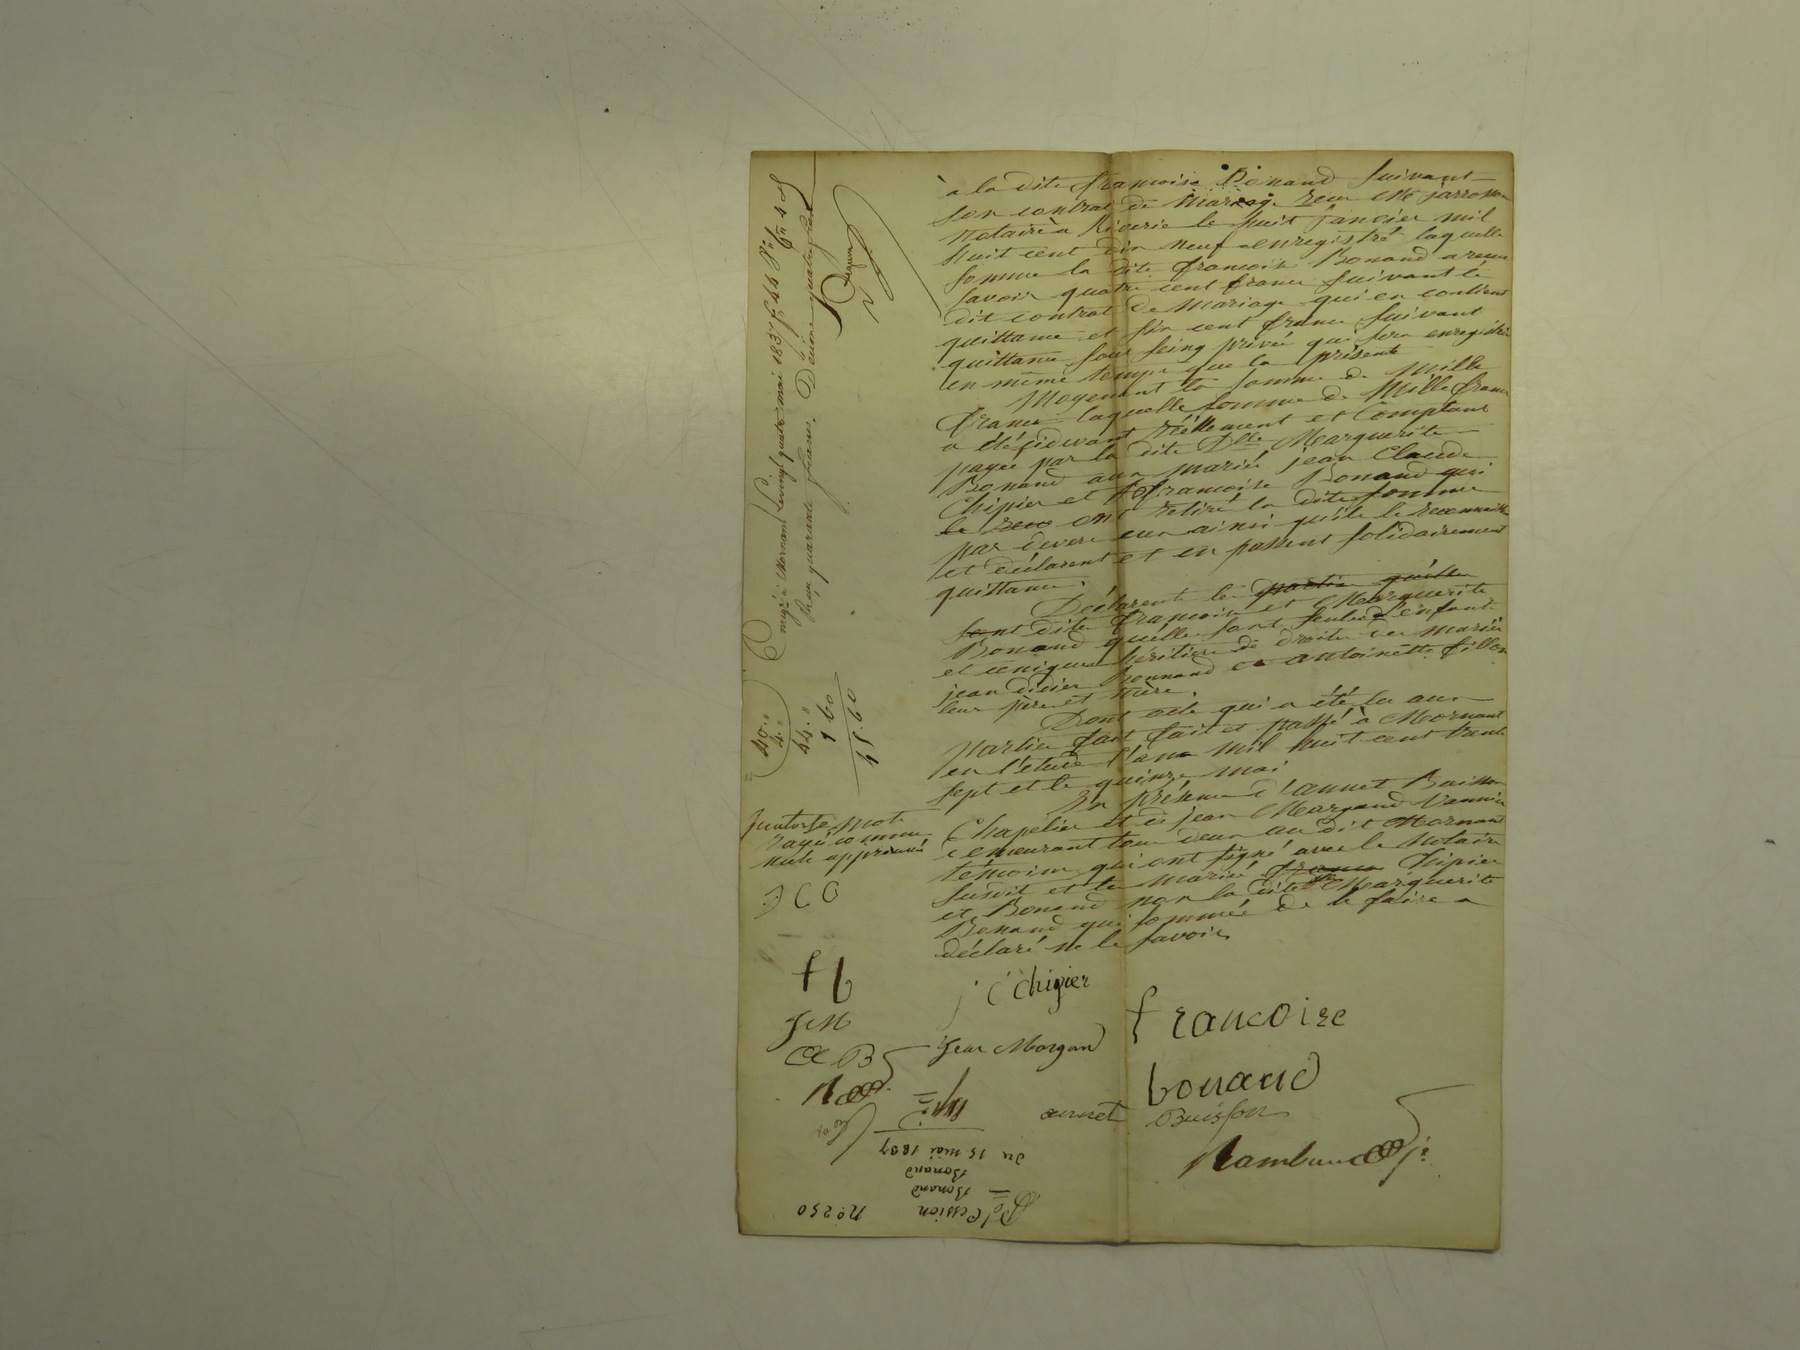 à la dite françoise Bonand suivant
son contrat de mariage recu Me jarrosson
notaire à Riverie le huit janvier mil
huit cent dix neuf enregistré laquelle
somme la dite françoise Bonand a recu
savoir quatre cent franc suivant le
dit contrat de mariage qui en contient
quittance et six cent franc suivant
quittance sous seing privée qui sera enregistrée
en même temps que la présente
Moyenant la somme de Mille
franc laquelle somme de Mille franc
a été cidevant réellement et Comptant
payée par la dite Dlle Marguerite
Bonand aux mariés jean Claude
Chipier et françoise Bonand qui
le recu ont retiré la dite somme
par devers eux ainsi qu'ils le reconnaisse
et déclarent et en passent solidairement
quittance.
Déclarent les partie quelles
sont dite françoise et Marguerite
Bonand qu'elles sont seules enfant
et uniques héritiere de droite des mariés
jean didier Bonnand et antoinette fillon
leur père et mère.
Dont acte qui a été lu aux
parties fait et passé à Mornant
en l'étude l'an mil huit cent trente
sept et le quinze mai
En présence d'annet Buisson
Chapelier et de jean Margand Vannier
demeurant tous deux au dit Mornant
témoins qui ont signé avec le Notaire
susdit et les mariés franco Chipier
et Bonand non la dite Dlle Marguerite
Bonand qui sommée de le faire a
déclaré ne le savoir
j C Chipier
francoise
bonand
Jean Morgand
annet Buisson
Rambaud
mot
rayé comme
nuls approuvés
J C C
f b
J M
A B
Enregé à Mornant le vingt quatre mai 1837 f 44
Reçu quarante francs. Décime quatre francs
40 "
4 "
44 "
1 60
45.60
No 250
Cession
Bonand
Bonand
du 15 mai 1837